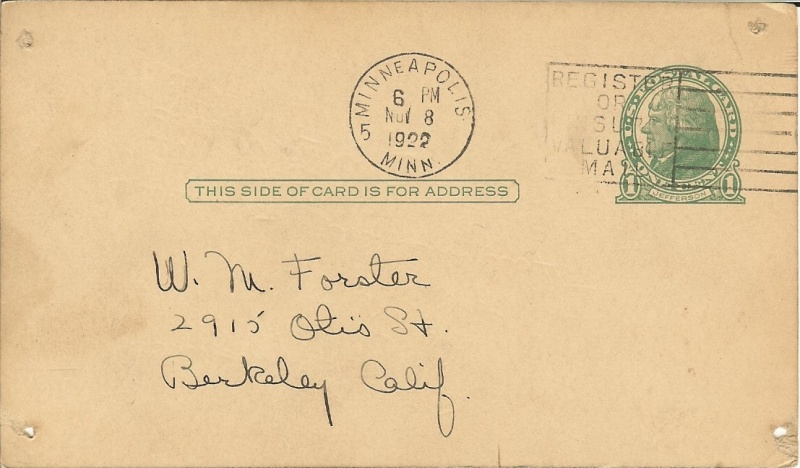 MINNEAPOLIS
6 PM
NOV 8
1922
5
MINN.
REGISTER
OR
VALUABLE
MA
U.S. POSTAL CARD
1 1
JEFFERSON
THIS SIDE OF CARD IS FOR ADDRESS
W. M. Forster
2915 Otis St.
Berkeley Calif.